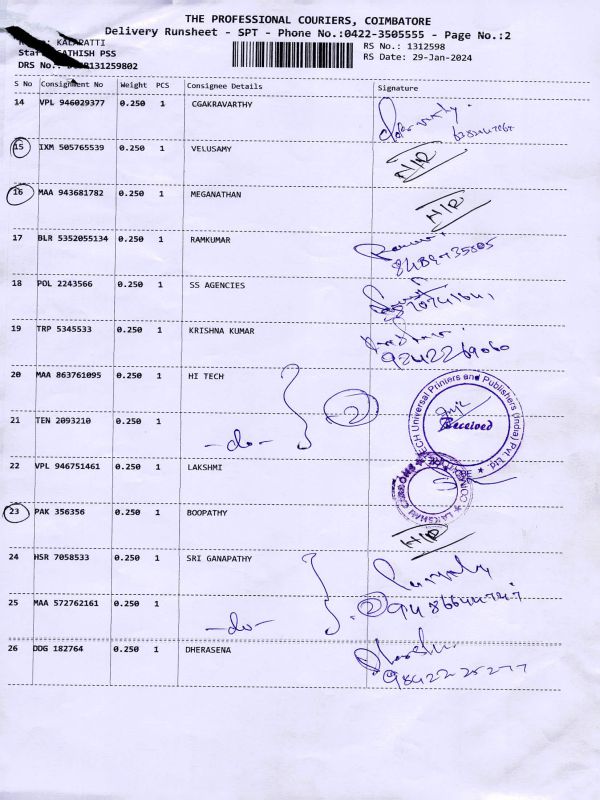 THE PROFESSIONAL COURIERS, COIMBATORE
Delivery Runsheet - SPT - Phone No.:0422-3505555 - Page No.:2
KALAPATTI
RS No.: 1312598
SATHISH PSS
RS Date: 29-Jan-2024
DRS No.: 131259802
S No Consignment No Weight PCS Consignee Details Signature
14 VPL 946029377 0.250 1 CGAKRAVARTHY
15 IXM 505765539 0.250 1 VELUSAMY H/R
16 MAA 943681782 0.250 1 MEGANATHAN H/R
17 BLR 5352055134 0.250 1 RAMKUMAR
18 POL 2243566 0.250 1 SS AGENCIES
19 TRP 5345533 0.250 1 KRISHNA KUMAR
9242269060
20 MAA 863761095 0.250 1 HI TECH 2
TECH Universal Printers and Publishers (India) Pvt. Ltd.
Received
21 TEN 2093210 0.250 1 -do-
22 VPL 946751461 0.250 1 LAKSHMI
23 PAK 356356 0.250 1 BOOPATHY H/R
24 HSR 7058533 0.250 1 SRI GANAPATHY
2
25 MAA 572762161 0.250 1 -do-
26 DDG 182764 0.250 1 DHERASENA
98422 25277